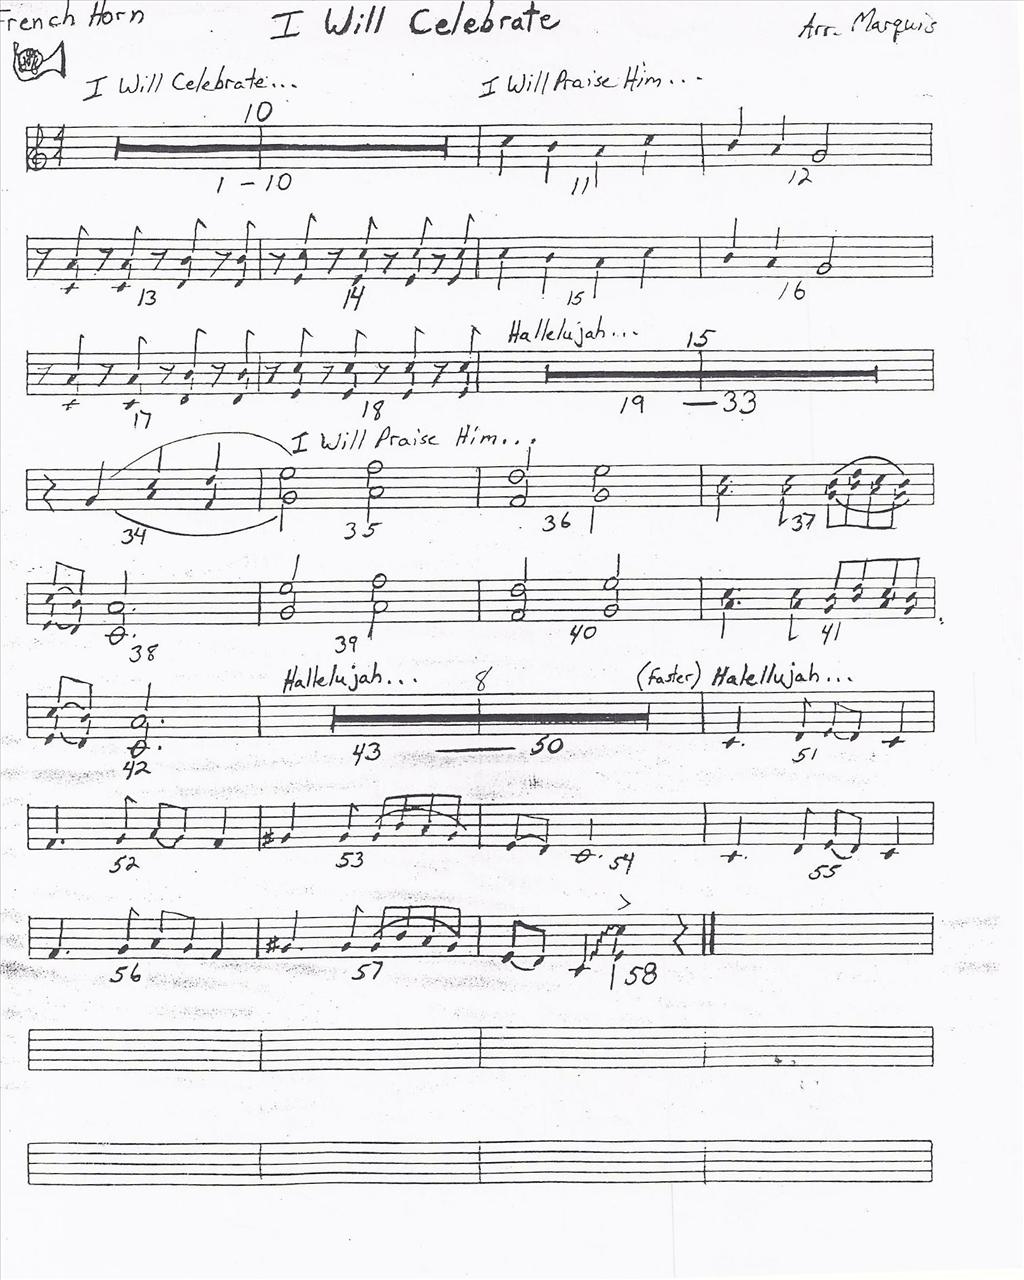 French Horn
I Will Celebrate
Arr. Marquis
I Will Celebrate...
I Will Praise Him...
10
4
4
1 - 10
11
12
13
14
15
16
Hallelujah...
15
17
18
19 — 33
I Will Praise Him...
34
35
36
37
38
39
40
41
Hallelujah...
8
(faster) Halellujah...
42
43 — 50
51
52
53
54
55
56
57
58